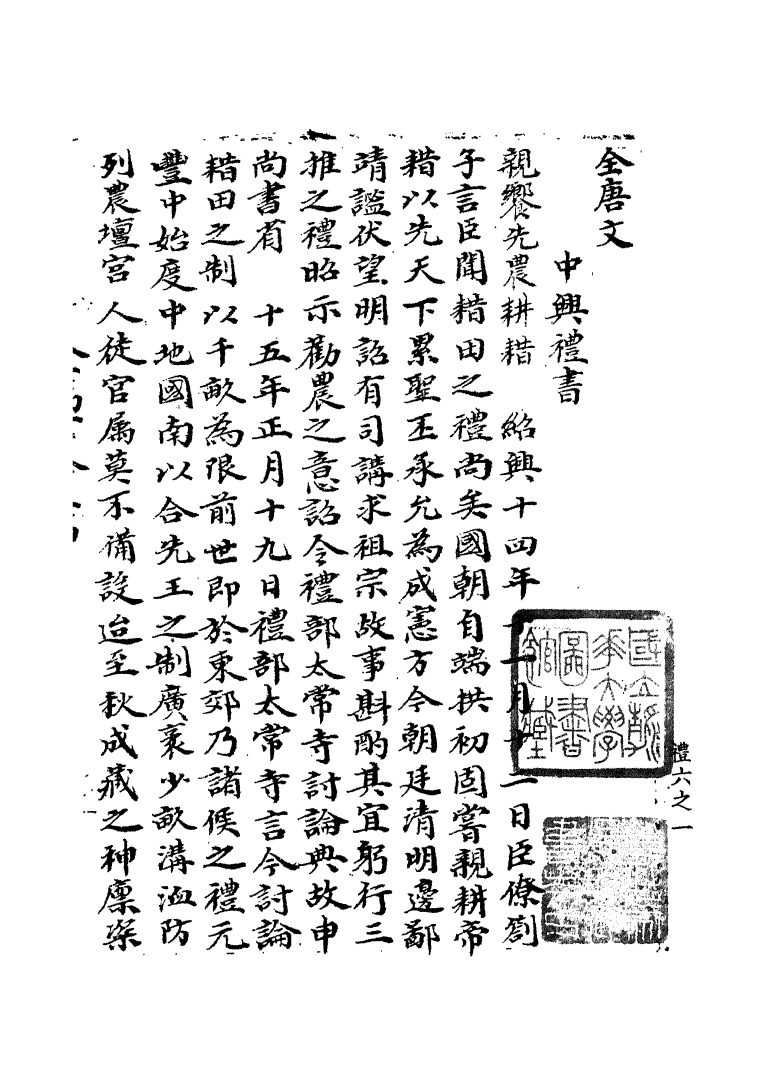 全唐文
中興禮書
親饗先農耕耤　紹興十四年十一月十二日臣僚劄
子言臣聞耤田之禮尚矣國朝自端拱初固嘗親耕帝
耤以先天下累聖丕承允為成憲方今朝廷清明邊鄙
靖謐伏望明詔有司講求祖宗故事斟酌其宜躬行三
推之禮昭示勸農之意詔令禮部太常寺討論典故申
尚書省　十五年正月十九日禮部太常寺言今討論
耤田之制以千畝為限前世即於東郊乃諸侯之禮元
豐中始度中地國南以合先王之制廣袤少畝溝洫防
列農壇宮人徒官屬莫不備設迨至秋成藏之神廩粢
國立
大學
圖書
館
禮六之一